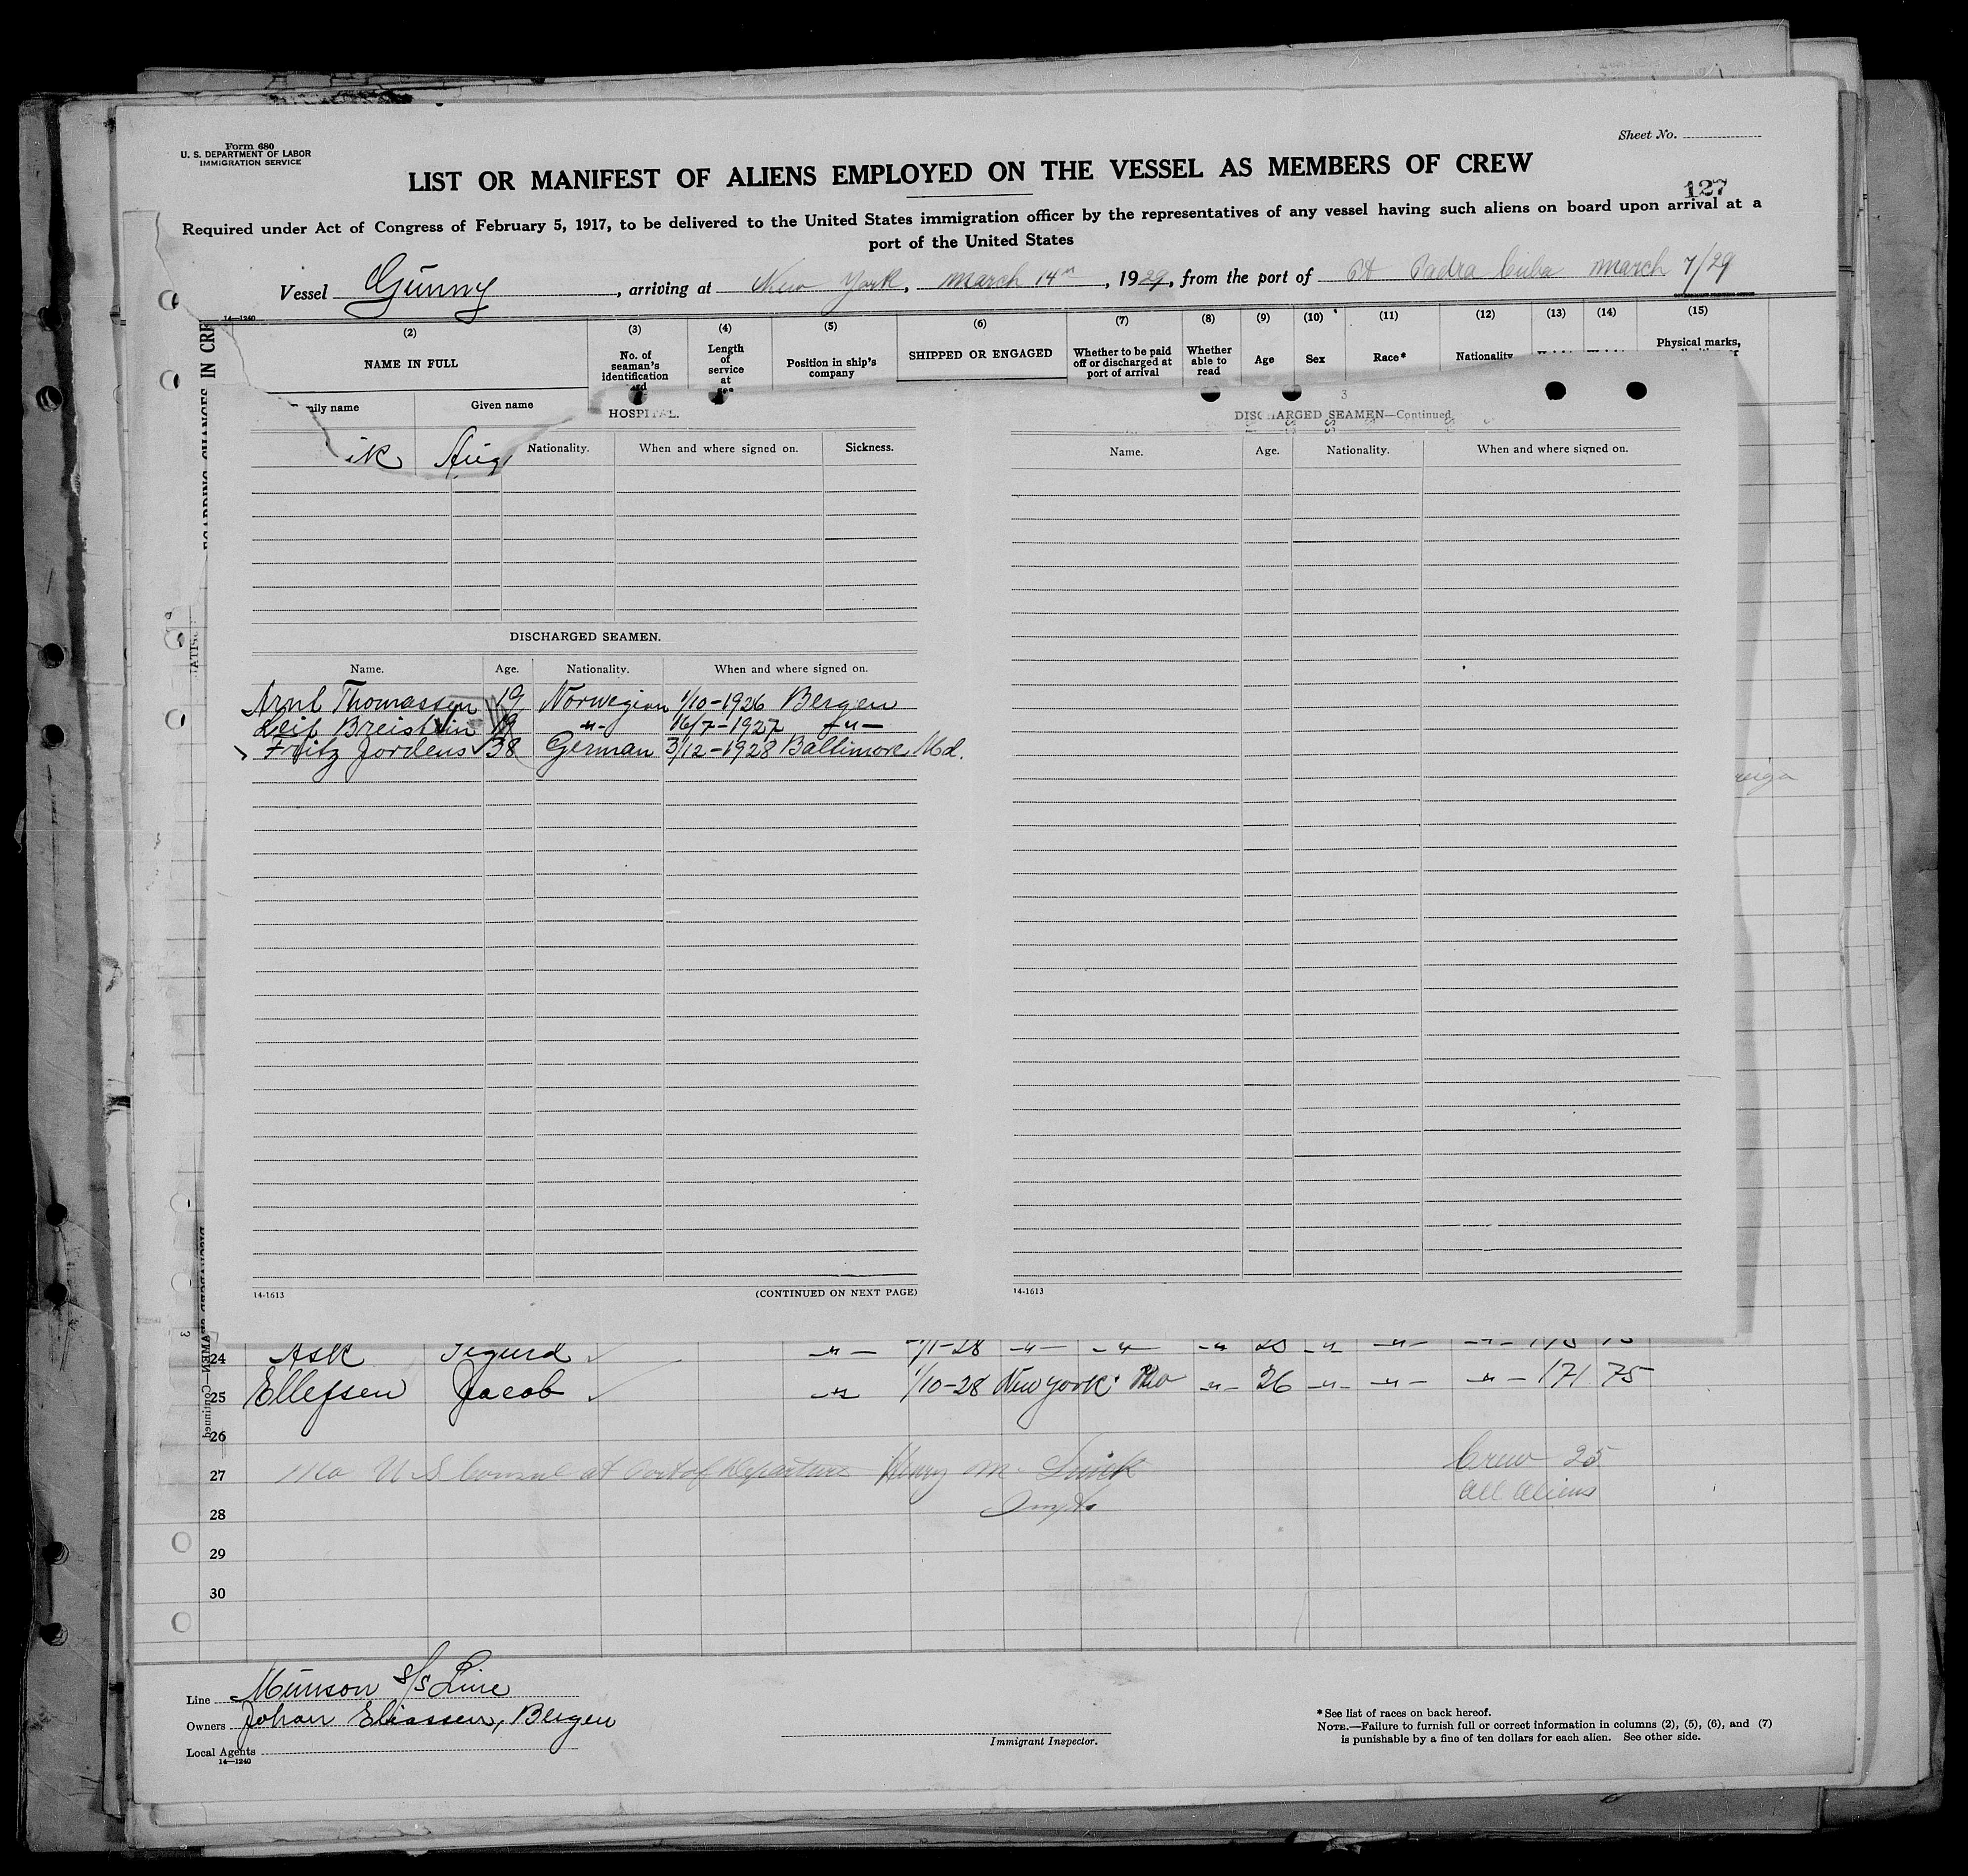 Form 680
U. S. DEPARTMENT OF LABOR
IMMIGRATION SERVICE
Sheet No.
LIST OR MANIFEST OF ALIENS EMPLOYED ON THE VESSEL AS MEMBERS OF CREW
127
Required under Act of Congress of February 5, 1917, to be delivered to the United States immigration officer by the representatives of any vessel having such aliens on board upon arrival at a
port of the United States
Vessel Gunny, arriving at New York, March 14th, 1929, from the port of Pt Padra Cuba March 7/29
14—1240
(2) (3) (4) (5) (6) (7) (8) (9) (10) (11) (12) (13) (14) (15)
NAME IN FULL
No. of seaman's identification
Length of service at
Position in ship's company
SHIPPED OR ENGAGED
Whether to be paid off or discharged at port of arrival
Whether able to read
Age
Sex
Race*
Nationality
Physical marks,
Given name
ik Aug
3
HOSPITAL.
Nationality. When and where signed on. Sickness.
DISCHARGED SEAMEN.
Name. Age. Nationality. When and where signed on.
Thomassen 19 Norwegian 1/10-1926 Bergen
Leif Breistein 19 -"- 16/7-1927 -"-
Fritz Jordens 38 German 3/12-1928 Baltimore Md.
14-1613
(CONTINUED ON NEXT PAGE)
DISCHARGED SEAMEN—Continued
Name. Age. Nationality. When and where signed on.
14-1613
24 Ask Sigurd -"- 1/1-28 -"- -"- -"- -"- -"- -"-
25 Ellefsen Jacob -"- 1/10-28 New York No -"- 26 -"- -"- -"- 171 75
26
27 No U S Consul at Port of Departure Henry M. Crew 25
All Aliens
28
29
30
Line Munson S/S Line
Owners Johan Eliassen, Bergen
Local Agents
14—1240
Immigrant Inspector.
*See list of races on back hereof.
NOTE.—Failure to furnish full or correct information in columns (2), (5), (6), and (7)
is punishable by a fine of ten dollars for each alien. See other side.